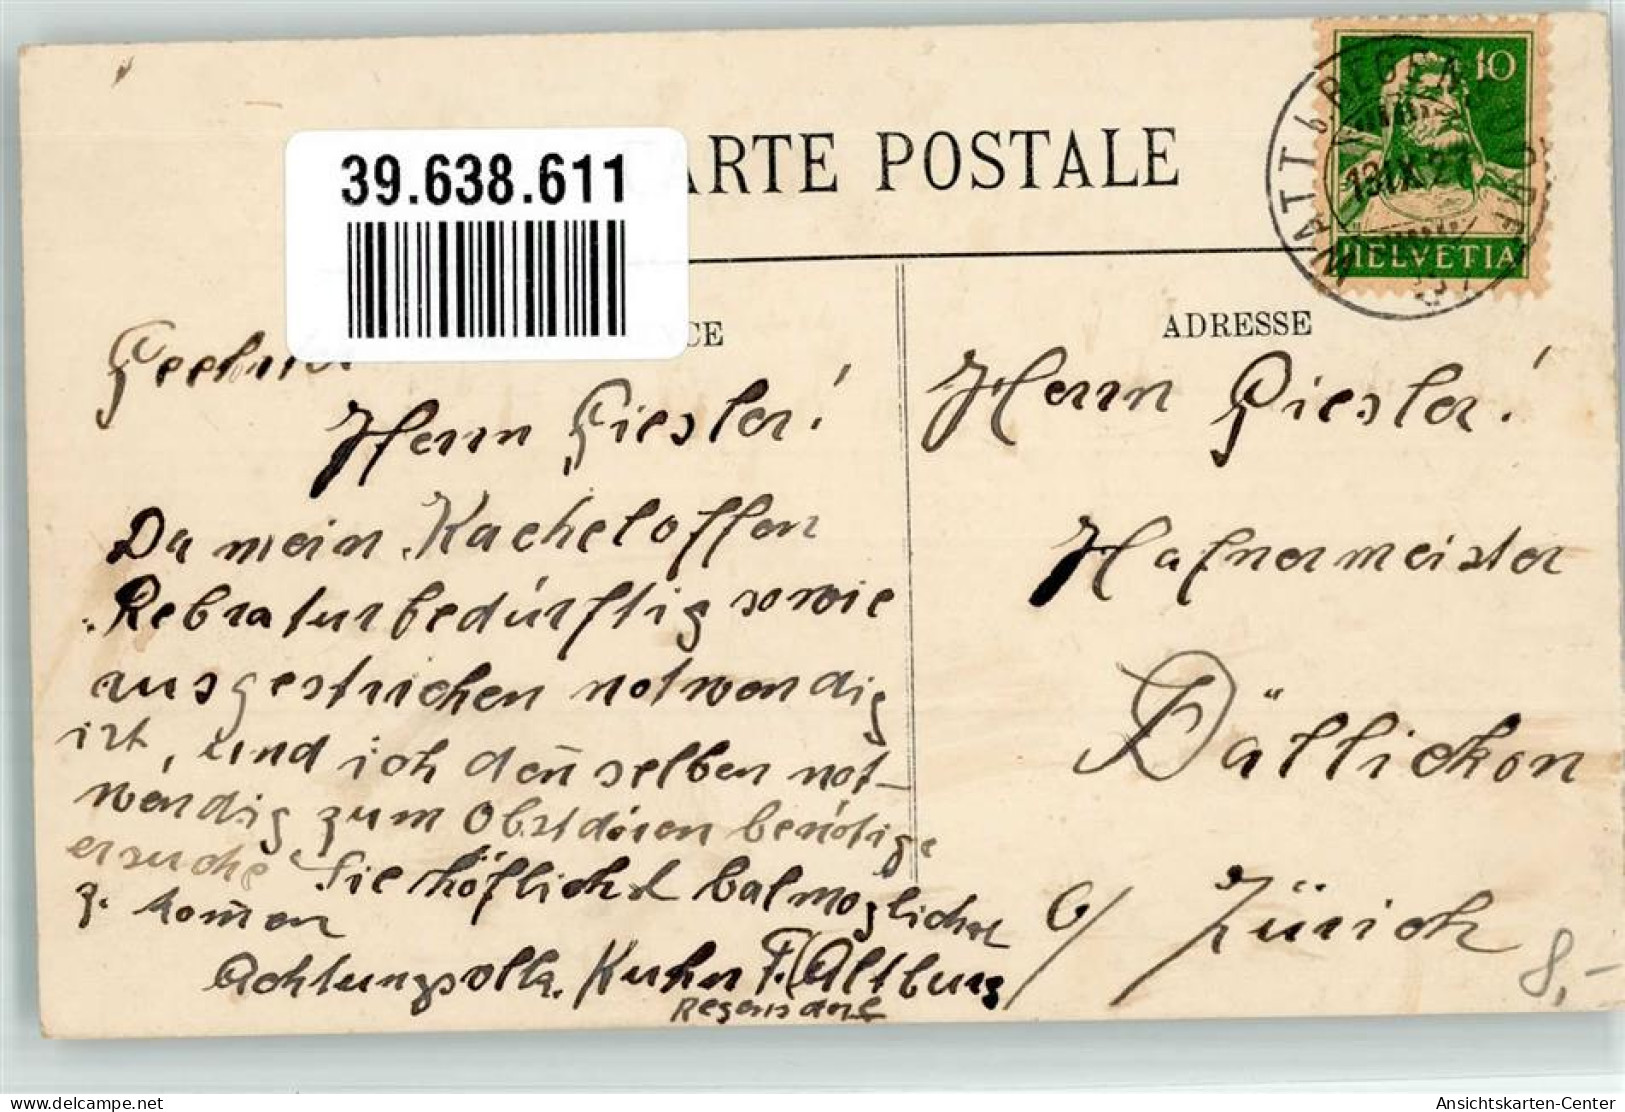 39.638.611
CARTE POSTALE
10
HELVETIA
WATT b. REGENSDORF
13.IX.2
ADRESSE
Geehrter
Herrn Giesler!
Da mein Kacheloffen
Rebraturbedürftig sowie
ausgestrichen notwendig
ist, und ich den̄ selben not-
wendig zum Obstdören benötige
ersuche Sie höflichst balmöglichst
z. kom̄en
Achtungsvollst. Kuhn F. Altburg
Regensdorf
Herrn Giesler!
Hafnermeister
Dällickon
Ct/ Zürich
8,-
delcampe.net
Ansichtskarten-Center